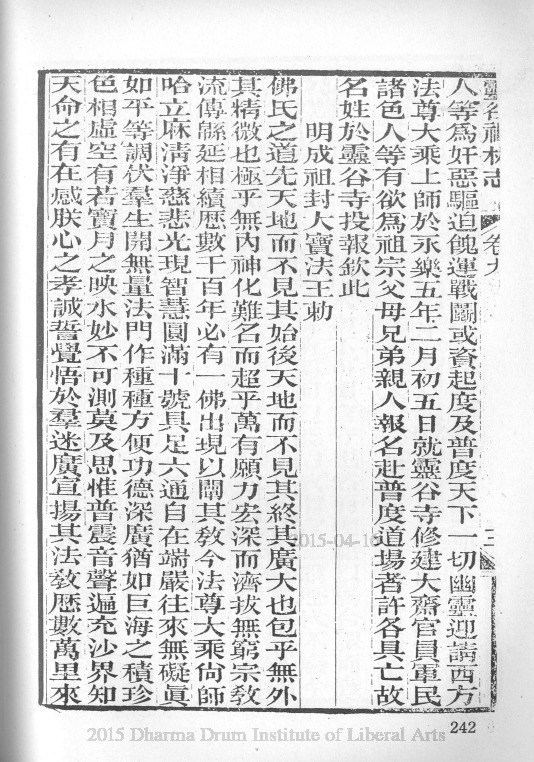 靈谷禪林志 卷九
人等為奸惡驅迫餽運戰鬬或資起度及普度天下一切幽靈迎請西方
法尊大乘上師於永樂五年二月初五日就靈谷寺修建大齋官員軍民
諸色人等有欲爲祖宗父母兄弟親人報名赴普度道場者許各具亡故
名姓於靈谷寺投報欽此
明成祖封大寶法王勅
佛氏之道先天地而不見其始後天地而不見其終其廣大也包乎無外
其精微也極乎無內神化難名而超乎萬有願力宏深而濟拔無窮宗教
流傳緜延相續歷數千百年必有一佛出現以闡其教今法尊大乘尙師
哈立麻清淨慈悲光現智慧圓滿十號具足六通自在端嚴往來無礙眞
如平等調伏羣生開無量法門作種種方便功德深廣猶如巨海之積珍
色相虛空有若寶月之映水妙不可測莫及思惟普震音聲遍充沙界知
天命之有在感朕心之孝誠誓覺悟於羣迷廣宣揚其法敎歷數萬里來
2015-04-16
242
2015 Dharma Drum Institute of Liberal Arts